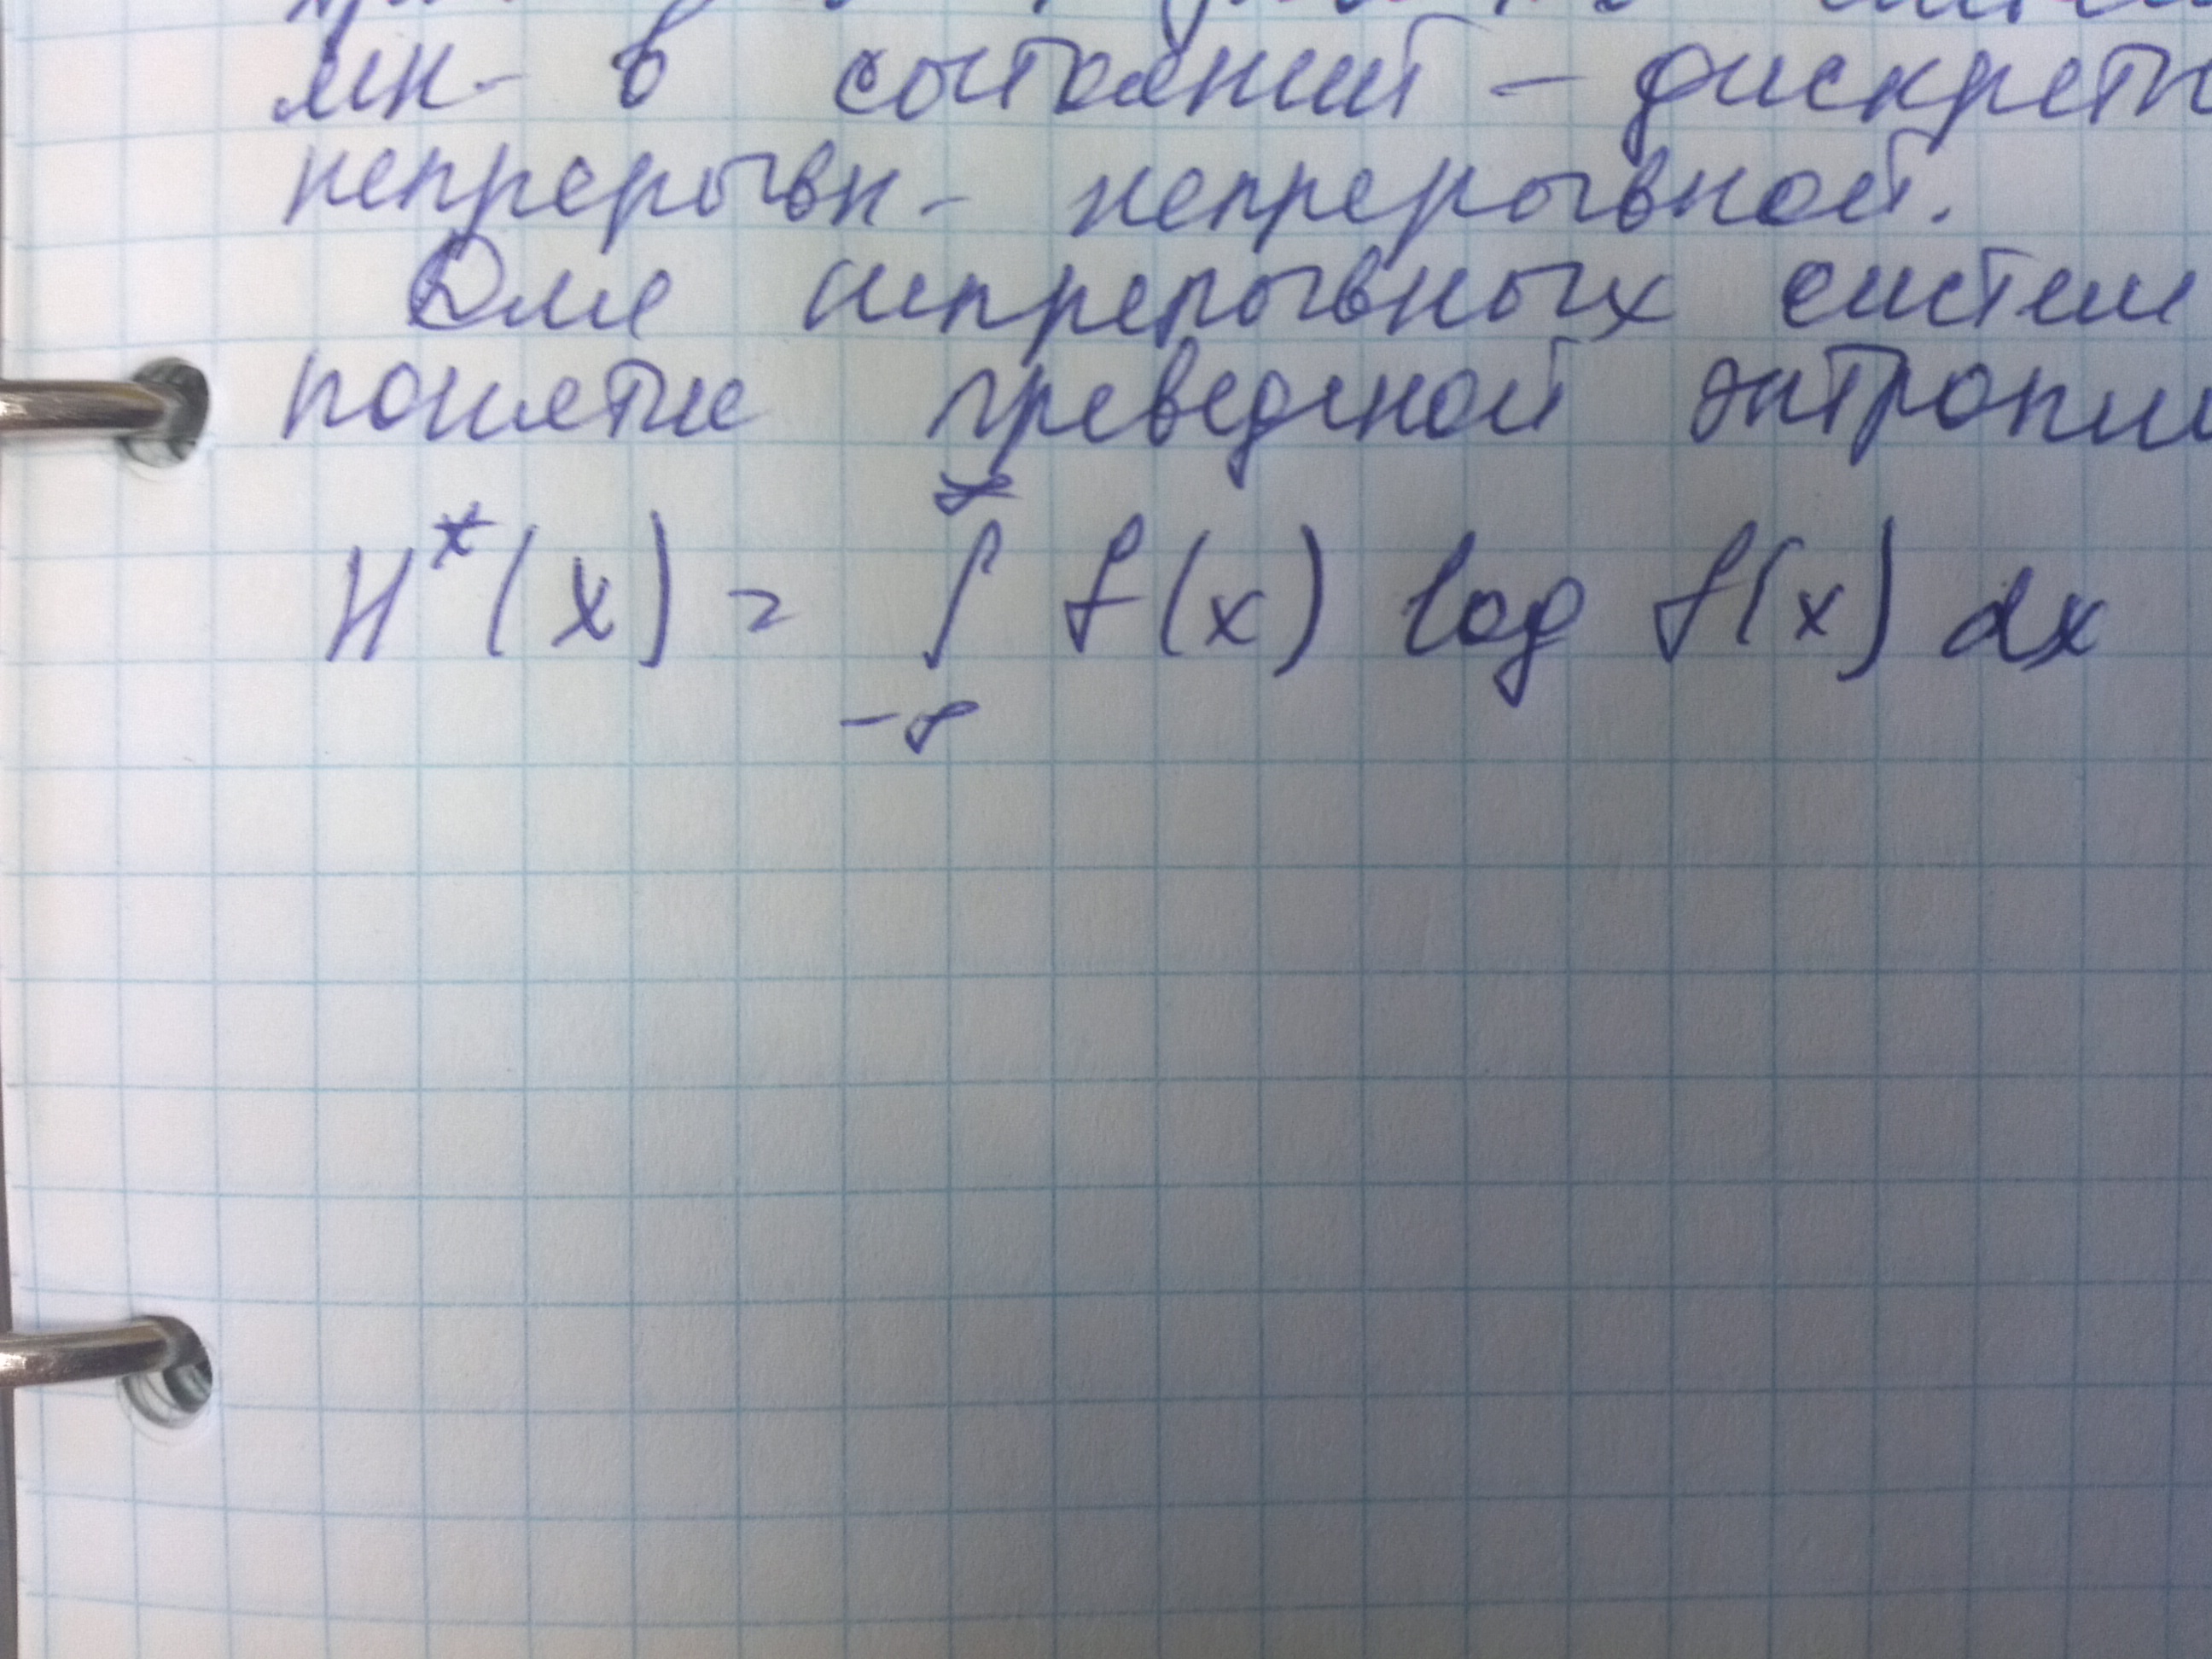 мн-в состояний - дискретн
непрерывн - непрерывной.
Для непрерывных систем
понятие приведеной энтропии
H*(x) = ∫_{-∞}^{∞} f(x) log f(x) dx